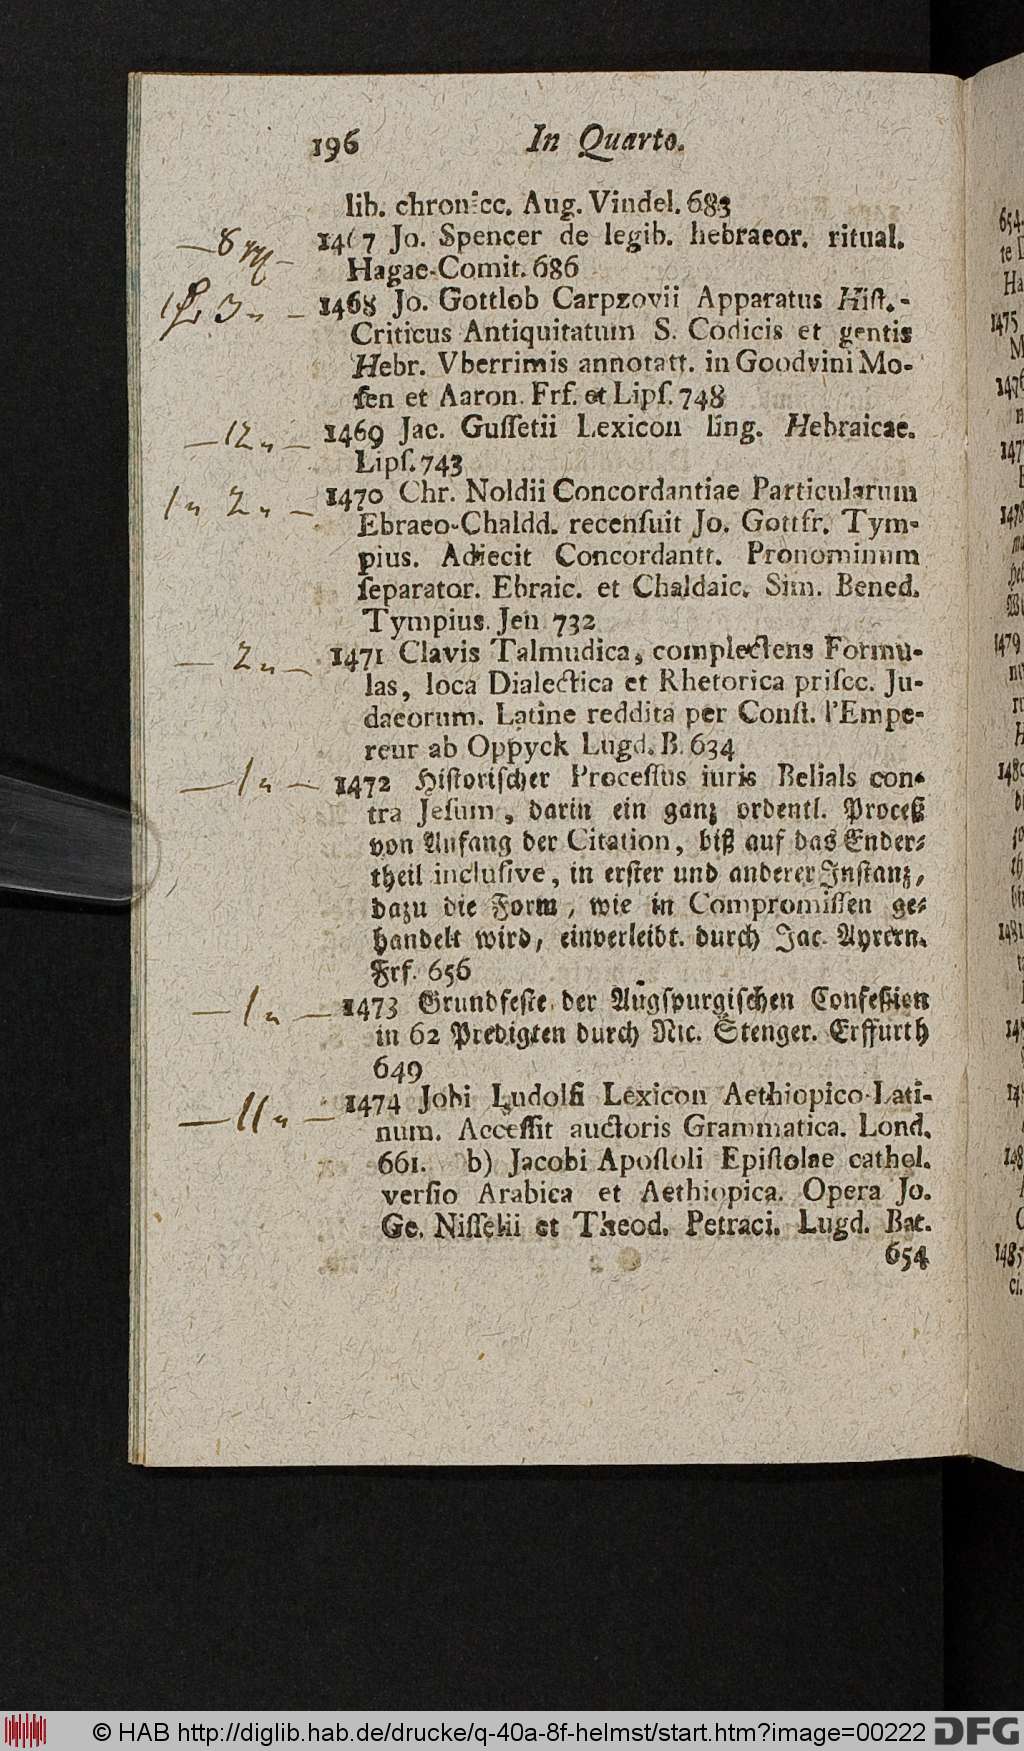 196 In Quarto.
lib. chronicc. Aug. Vindel. 683
— 8 — 1467 Jo. Spencer de legib. hebraeor. ritual.
Hagae-Comit. 686
1 3 „ — 1468 Jo. Gottlob Carpzovii Apparatus Hiſt.-
Criticus Antiquitatum S. Codicis et gentis
Hebr. Vberrimis annotatt. in Goodvini Mo-
ſen et Aaron. Frf. et Lipſ. 748
— 12 „ — 1469 Jac. Guſſetii Lexicon ling. Hebraicae.
Lipſ. 743
1 „ 2 „ — 1470 Chr. Noldii Concordantiae Particularum
Ebraeo-Chaldd. recenſuit Jo. Gottfr. Tym-
pius. Adiecit Concordantt. Pronominum
ſeparator. Ebraic. et Chaldaic. Sim. Bened.
Tympius. Jen 732
— 2 „ — 1471 Clavis Talmudica, complectens Formu-
las, loca Dialectica et Rhetorica priſcc. Ju-
daeorum. Latine reddita per Conſt. l'Empe-
reur ab Oppyck Lugd. B. 634
— 1 „ — 1472 Hiſtoriſcher Proceſſus iuris Belials con-
tra Jeſum, darin ein ganz ordentl. Proceß
von Anfang der Citation, biß auf das Ender-
theil incluſive, in erſter und anderer Inſtanz,
dazu die Form, wie in Compromiſſen ge-
handelt wird, einverleibt. durch Jac. Ayrern.
Frf. 656
— 1 „ — 1473 Grundfeſte der Augſpurgiſchen Confeßion
in 62 Predigten durch Nic. Stenger. Erffurth
649
— 11 „ — 1474 Jobi Ludolfi Lexicon Aethiopico-Lati-
num. Acceſſit auctoris Grammatica. Lond.
661. b) Jacobi Apoſtoli Epiſtolae cathol.
verſio Arabica et Aethiopica. Opera Jo.
Ge. Niſſelii et Theod. Petraei. Lugd. Bat.
654
654
te
Ha
1475
M
1476
1478
1479
1485
ci.
© HAB http://diglib.hab.de/drucke/q-40a-8f-helmst/start.htm?image=00222 DFG